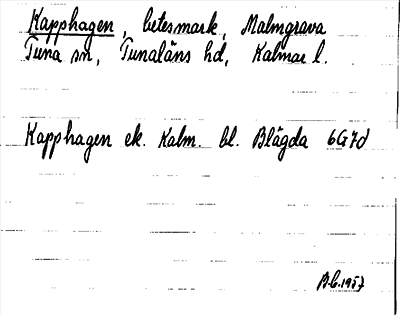 Kapphagen, betesmark, Malmgrava
Tuna sn, Tunaläns hd, Kalmar l.
Kapphagen ek. Kalm. bl. Blågda 6G7d
B.C. 1957